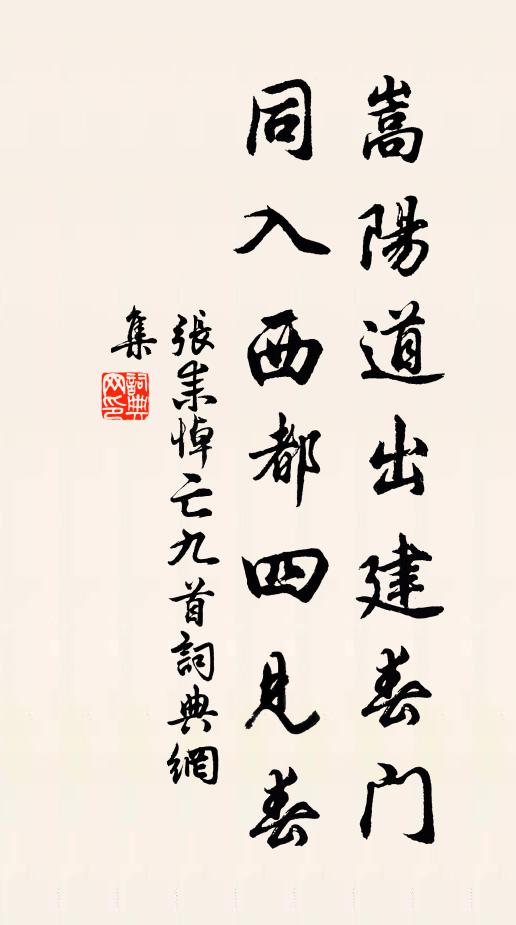 嵩陽道出建春門
同入西都四見春
張耒悼亡九首詞典網
集
詞典
网印